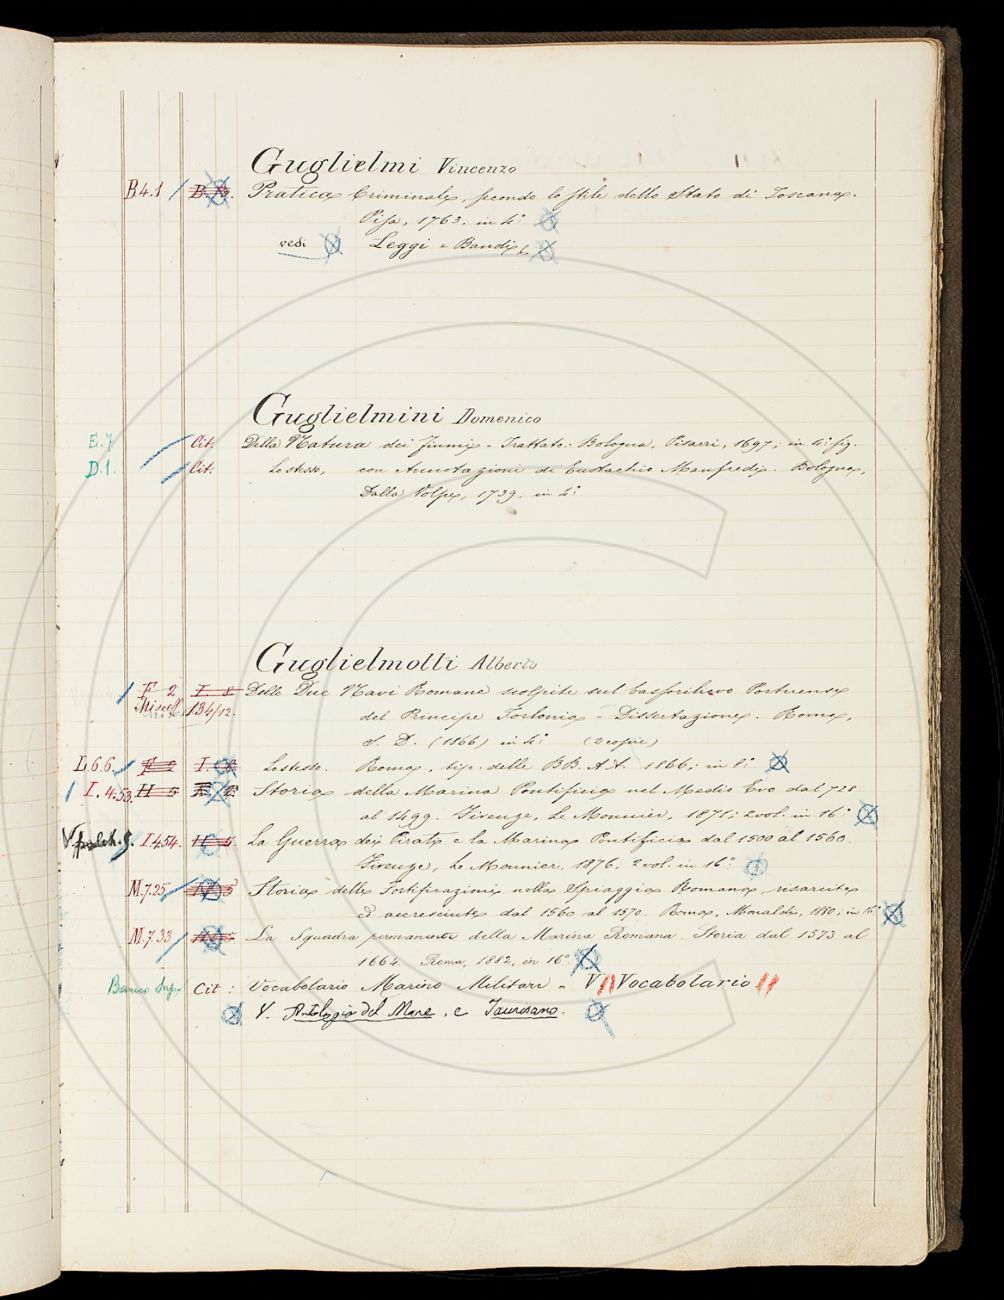 Guglielmi Vincenzo
B4.1 Pratica Criminale, secondo lo stile dello Stato di Toscana.
Pisa, 1763. in 4°
vedi Leggi e Bandi
Guglielmini Domenico
E.7 Cit. Della Natura dei fiumi - Trattato: Bologna, Pisarri, 1697; in 4° fig.
D.1. Cit. Lo stesso, con Annotazioni di Eustachio Manfredi. Bologna,
Dalla Volpe, 1739, in 4°
Guglielmotti Alberto
F 2 I 8 Delle Due Navi Romane scolpite sul bassorilievo Portuense
Miscell. 184/12. del Principe Torlonia - Dissertazione. Roma,
S. D. (1866) in 4° (2 copie)
L.6.6. Lo stesso. Roma, tip. delle BB. AA. 1866; in 8°
I.4.53. H 5 Storia della Marina Pontificia nel Medio Evo dal 728
al 1499. Firenze, Le Monnier, 1871; 2 vol. in 16°
I.4.54. H 5 La Guerra dei Pirati e la Marina Pontificia dal 1500 al 1560.
Firenze, Le Monnier, 1876; 2 vol. in 16°
M.7.25 Storia delle Fortificazioni nella Spiaggia Romana, risarcite
ed accresciute dal 1560 al 1570. Roma, Monaldi, 1880; in 16°
M.7.33 La Squadra permanente della Marina Romana. Storia dal 1573 al
1664. Roma, 1882, in 16°
Cit: Vocabolario Marino Militare - V Vocabolario
V. Antologia del Mare, e Taurisano.